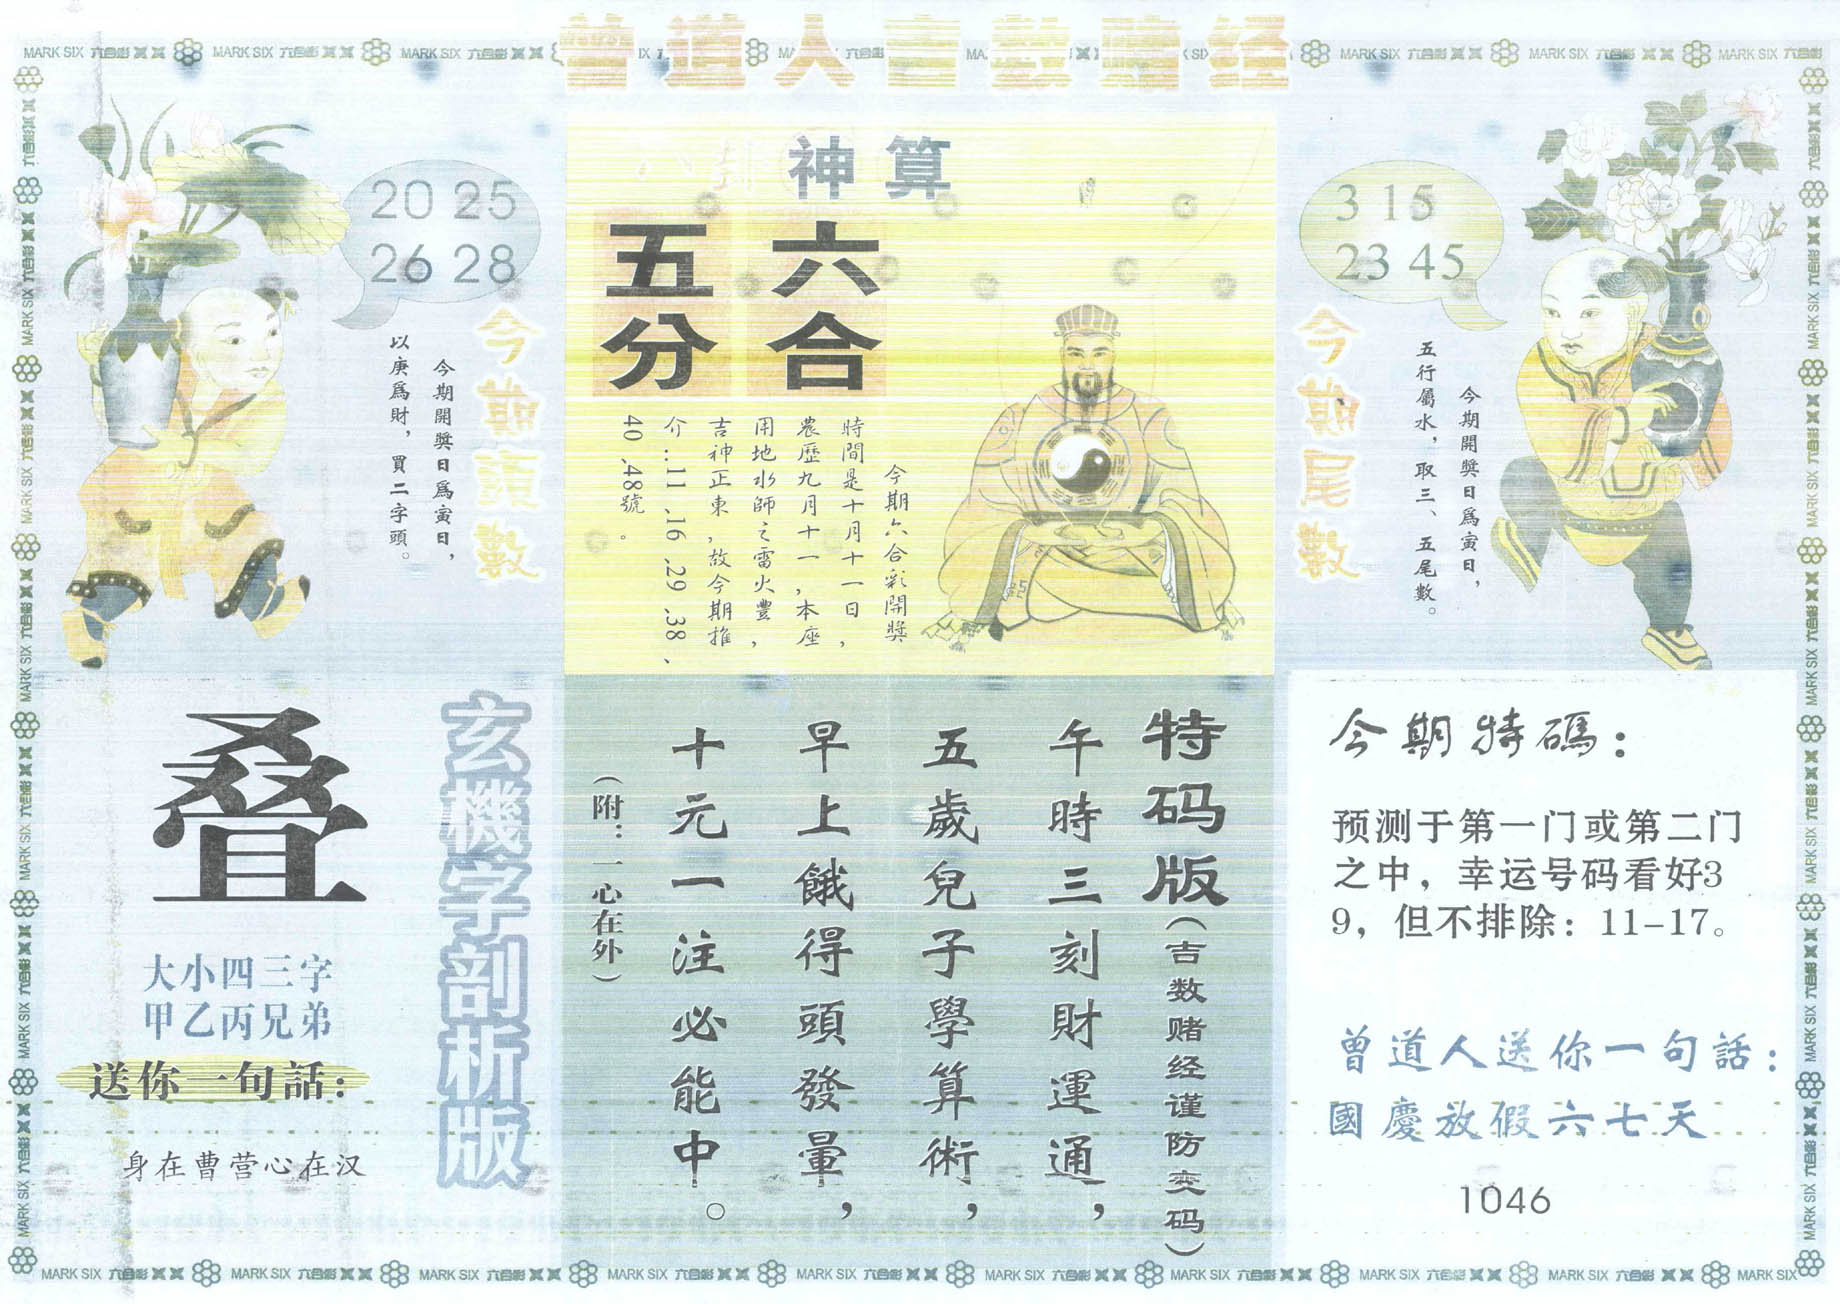 曾道人吉數賭经
MARK SIX 六合彩
20 25
26 28
今期頭數
今期開獎日爲寅日，
以庚爲財，買二字頭。
神算
六合
五分
今期六合彩開獎
時間是十月十一日，
農歷九月十一，本座
用地水師之雷火豐，
吉神正東，故今期推
介..11.16.29.38、
40.48號。
3 15
23 45
今期尾數
今期開獎日爲寅日，
五行屬水，取三、五尾數。
玄機字剖析版
叠
大小四三字
甲乙丙兄弟
送你一句話：
身在曹营心在汉
特码版（吉数赌经谨防变码）
午時三刻財運通，
五歲兒子學算術，
早上餓得頭發暈，
十元一注必能中。
（附：一心在外）
今期特碼：
预测于第一门或第二门
之中，幸运号码看好3
9，但不排除：11-17。
曾道人送你一句話：
國慶放假六七天
1046